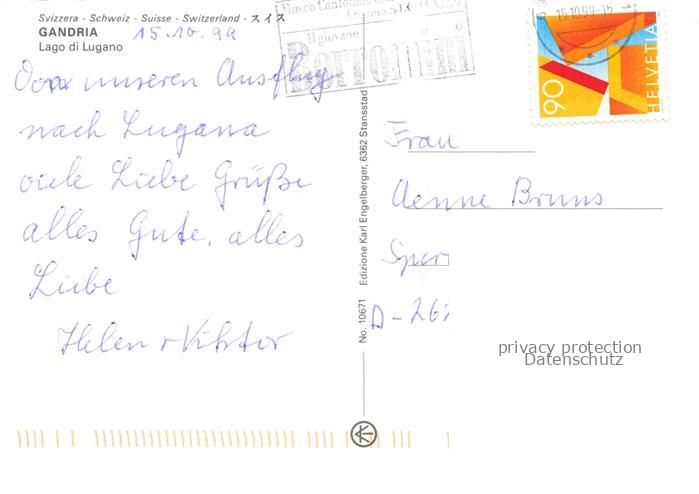 Svizzera - Schweiz - Suisse - Switzerland - スイス
GANDRIA 15.10.99
Lago di Lugano
Von unseren Ausflug
nach Lugana
viele Liebe Grüße
alles Gute, alles
Liebe
Helen + Viktor
Museo Cantonale
il giovane
Borromini
15.10.99-15
90
HELVETIA
No. 10671 Edizione Karl Engelberger, 6362 Stansstad
Frau
Aenne Bruns
Sper
D-26
privacy protection
Datenschutz